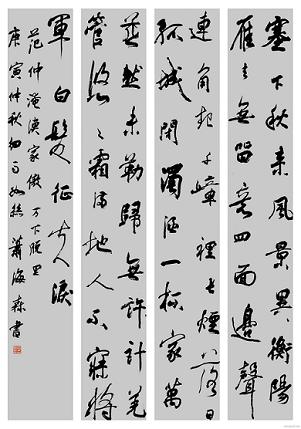 塞下秋来风景異衡陽
雁去無留意四面邊聲
連角起千嶂裡長煙落日
孤城閉濁酒一杯家萬
燕然未勒歸無計羌
管悠悠霜满地人不寐将
軍白髮征夫淚
范仲淹漁家傲 万下脱里
庚寅仲秋细雨如絲 蕭海森書